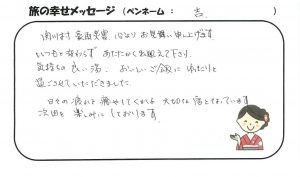 旅の幸せメッセージ（ペンネーム：　吉　）
関川村 豪雨災害 心よりお見舞い申し上げます
いつも変わらず あたたかくお迎えて下さり
気持ちの良い湯、おいしいご飯に ゆったりと
過ごさせていただきました
日々の疲れを癒やしてくれる 大切な宿となっています
次回を楽しみにしております